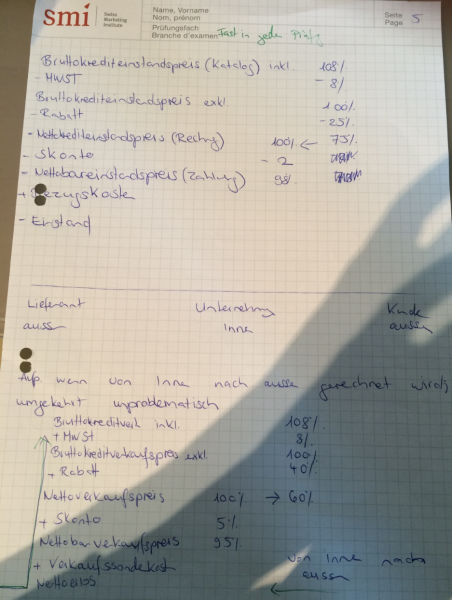 smi Swiss Marketing Institute
Name, Vorname
Nom, prénom
Prüfungsfach
Branche d'examen Fast in jede Prüfg
Seite
Page 5
Bruttokrediteinstandspreis (Katalog) inkl. 108%
- MWST - 8%
Bruttokrediteinstandspreis exkl. 100%
- Rabatt - 25%
- Nettokrediteinstandspreis (Rechng) 100% ← 75%
- Skonto - 2
- Nettobareinstandspreis (Zahlung) 98%
+ Bezugskoste
- Einstand
Lieferant Unternehmg Kunde
aussen Inne aussen
Aufp. wenn von Inne nach ausse gerechnet wird,
umgekehrt unproblematisch
Bruttokreditverk inkl. 108%
+ MwSt 8%
Bruttokreditverkaufspreis exkl. 100%
+ Rabatt 40%
Nettoverkaufspreis 100% → 60%
+ Skonto 5%
Nettobarverkaufspreis 95%
+ Verkaufssondekost von Inne nach
Nettoerlös aussen